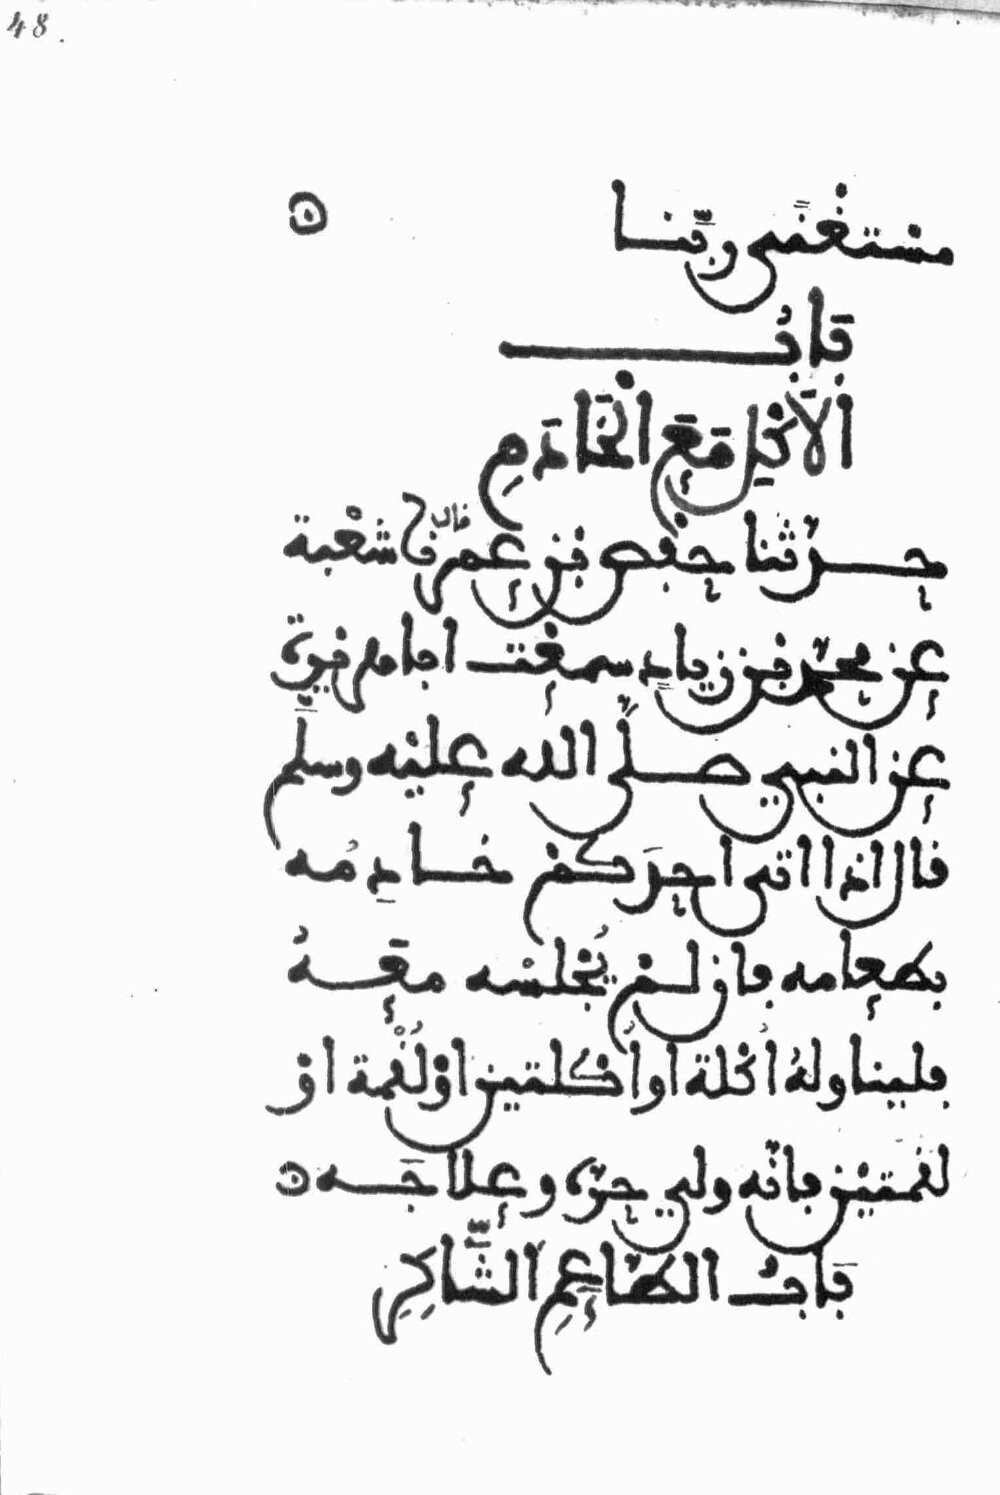 48.
مستغنى ربنا
باب
الاكل مع الخادم
حدثنا حفص بن عمر قال نا شعبة
عن محمد بن زياد سمعت ابا هريرة
عن النبي صلى الله عليه وسلم
قال اذا اتى احدكم خادمه
بطعامه فان لم يجلسه معه
فليناوله اكلة او اكلتين او لقمة او
لقمتين فانه ولي حره وعلاجه
باب الطاعم الشاكر